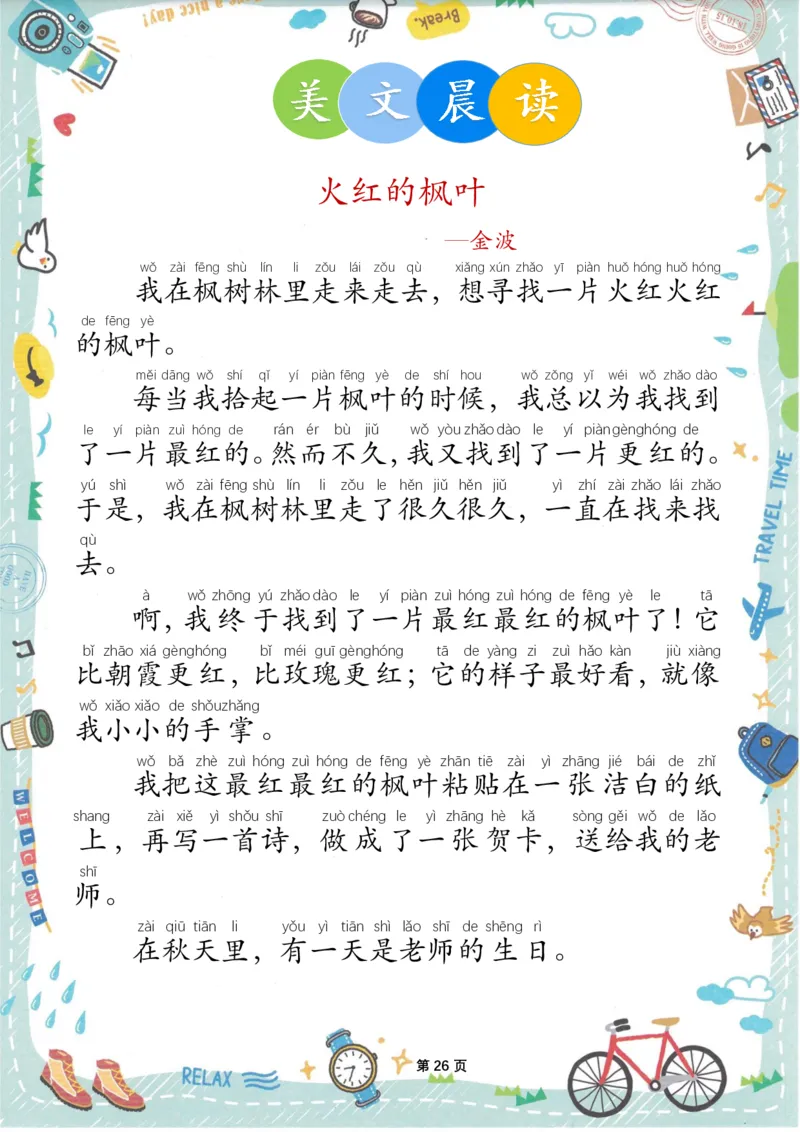 have a nice day!
Break.
美文晨读
火红的枫叶
—金波
wǒ zài fēng shù lín li zǒu lái zǒu qù xiǎng xún zhǎo yī piàn huǒ hóng huǒ hóng
我在枫树林里走来走去，想寻找一片火红火红
de fēng yè
的枫叶。
měi dāng wǒ shí qǐ yí piàn fēng yè de shí hou wǒ zǒng yǐ wéi wǒ zhǎo dào
每当我拾起一片枫叶的时候，我总以为我找到
le yí piàn zuì hóng de rán ér bù jiǔ wǒ yòu zhǎo dào le yí piàn gèng hóng de
了一片最红的。然而不久，我又找到了一片更红的。
yú shì wǒ zài fēng shù lín li zǒu le hěn jiǔ hěn jiǔ yì zhí zài zhǎo lái zhǎo
于是，我在枫树林里走了很久很久，一直在找来找
qù
去。
à wǒ zhōng yú zhǎo dào le yí piàn zuì hóng zuì hóng de fēng yè le tā
啊，我终于找到了一片最红最红的枫叶了！它
bǐ zhāo xiá gèng hóng bǐ méi guī gèng hóng tā de yàng zi zuì hǎo kàn jiù xiàng
比朝霞更红，比玫瑰更红；它的样子最好看，就像
wǒ xiǎo xiǎo de shǒu zhǎng
我小小的手掌。
wǒ bǎ zhè zuì hóng zuì hóng de fēng yè zhān tiē zài yì zhāng jié bái de zhǐ
我把这最红最红的枫叶粘贴在一张洁白的纸
shang zài xiě yì shǒu shī zuò chéng le yì zhāng hè kǎ sòng gěi wǒ de lǎo
上，再写一首诗，做成了一张贺卡，送给我的老
shī
师。
zài qiū tiān li yǒu yì tiān shì lǎo shī de shēng rì
在秋天里，有一天是老师的生日。
TRAVEL TIME
WELCOME
RELAX
第 26 页